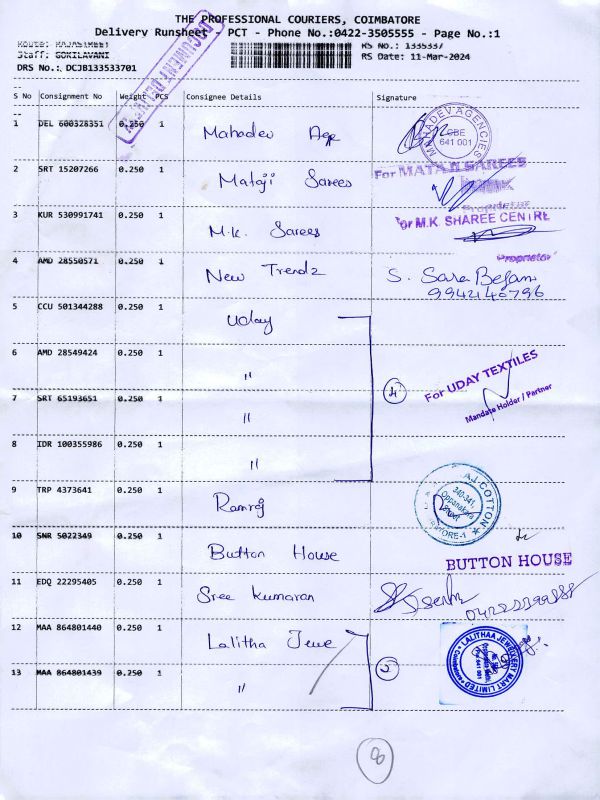 THE PROFESSIONAL COURIERS, COIMBATORE
Delivery Runsheet - PCT - Phone No.:0422-3505555 - Page No.:1
Route: RAJASTREET RS No.: 1335337
Staff: GOKILAVANI RS Date: 11-Mar-2024
DRS No.: DCJB133533701
S No Consignment No Weight PCS Consignee Details Signature
1 DEL 600328351 0.250 1 Mahadev Age
MAHADEV AGENCIES
CBE
641 001
2 SRT 15207266 0.250 1 Mataji Sarees
For MATAJI SAREES
Proprietor
3 KUR 530991741 0.250 1 M.K. Sarees
For M.K. SHAREE CENTRE
Proprietor
4 AMD 28550571 0.250 1 New Trendz S. Sara Begam
9942140796
5 CCU 501344288 0.250 1 Uday
6 AMD 28549424 0.250 1 "
4
For UDAY TEXTILES
Mandate Holder / Partner
7 SRT 65193651 0.250 1 "
8 IDR 100355986 0.250 1 "
9 TRP 4373641 0.250 1 Ramraj
COTTON
340-341,
Oppanakara
Street
10 SNR 5022349 0.250 1 Button House
BUTTON HOUSE
11 EDQ 22295405 0.250 1 Sree Kumaran
12 MAA 864801440 0.250 1 Lalitha Jewe
LALITHAA JEWELLERY MART LIMITED
13 MAA 864801439 0.250 1 "